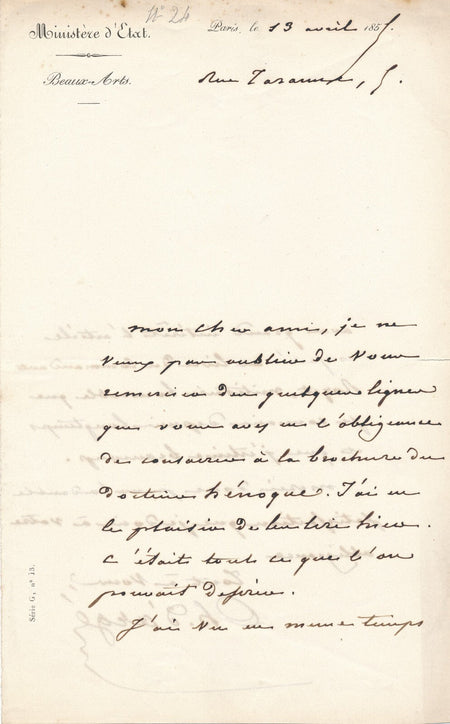 N° 24
Ministère d'Etat.
Paris, le 13 avril 185
Beaux-Arts.
Rue Taranne, 5.
mon cher ami, je ne
veux pas oublier de vous
remercier des quelques lignes
que vous avez eu l'obligeance
de consacrer à la brochure du
docteur hénoque. J'ai eu
le plaisir de les lire hier.
c'était tout ce que l'on
pouvait desirer.
J'ai vu en meme temps
Série G, n° 13.